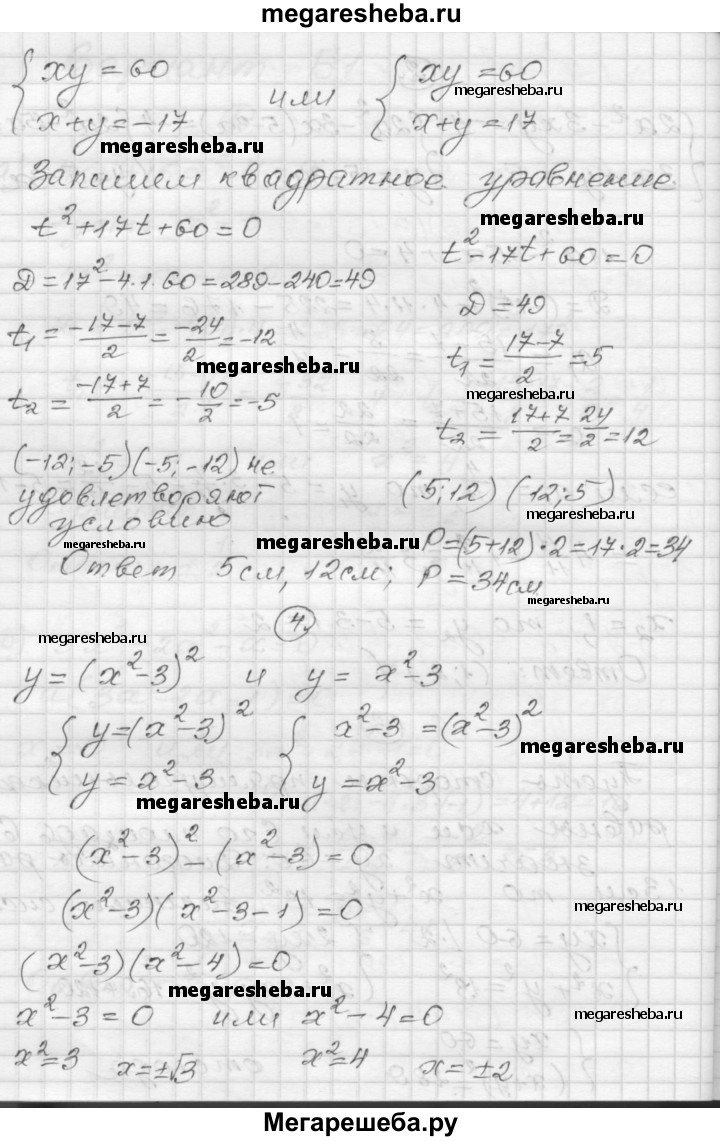 megaresheba.ru
{ xy = 60 или { xy = 60
megaresheba.ru
x+y = -17 x+y = 17
megaresheba.ru
Запишем квадратное уравнение
megaresheba.ru
t²+17t+60=0 t²-17t+60=0
D=17²-4·1·60=289-240=49 D=49
t₁ = (-17-7)/2 = -24/2 = -12 t₁ = (17-7)/2 = 5
megaresheba.ru
t₂ = (-17+7)/2 = -10/2 = -5 t₂ = (17+7)/2 = 24/2 = 12
(-12; -5) (-5; -12) не (5;12) (12;5)
удовлетворяют
megaresheba.ru
условию P=(5+12)·2=17·2=34
megaresheba.ru megaresheba.ru
Ответ 5см, 12см; P = 34см
megaresheba.ru
4.
megaresheba.ru
y = (x²-3)² и y = x²-3
{ y=(x²-3)² { x²-3 = (x²-3)²
megaresheba.ru
y = x²-3 y = x²-3
megaresheba.ru
(x²-3)² - (x²-3) = 0
(x²-3)(x²-3-1) = 0
megaresheba.ru
(x²-3)(x²-4) = 0
megaresheba.ru
x²-3 = 0 или x²-4=0
megaresheba.ru
x²=3 x=±√3 x²=4 x = ±2
Мегарешеба.ру